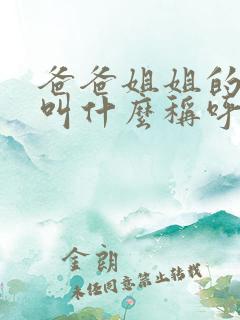 爸爸姐姐的
叫什麼稱呼
金朗
未经同意禁止转载